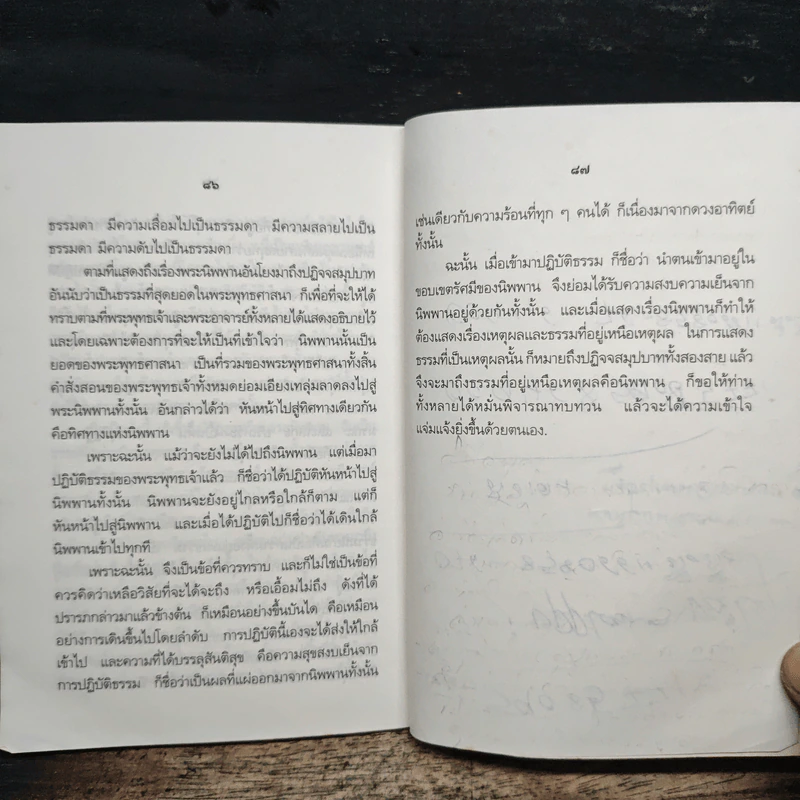 ๘๖
ธรรมดา มีความเสื่อมไปเป็นธรรมดา มีความสลายไปเป็น
ธรรมดา มีความดับไปเป็นธรรมดา
ตามที่แสดงถึงเรื่องพระนิพพานอันโยงมาถึงปฏิจจสมุปบาท
อันนับว่าเป็นธรรมที่สุดยอดในพระพุทธศาสนา ก็เพื่อที่จะให้ได้
ทราบตามที่พระพุทธเจ้าและพระอาจารย์ทั้งหลายได้แสดงอธิบายไว้
และโดยเฉพาะต้องการที่จะให้เป็นที่เข้าใจว่า นิพพานนั้นเป็น
ยอดของพระพุทธศาสนา เป็นที่รวมของพระพุทธศาสนาทั้งสิ้น
คำสั่งสอนของพระพุทธเจ้าทั้งหมดย่อมเอียงเทลุ่มลาดลงไปสู่
พระนิพพานทั้งนั้น อันกล่าวได้ว่า หันหน้าไปสู่ทิศทางเดียวกัน
คือทิศทางแห่งนิพพาน
เพราะฉะนั้น แม้ว่าจะยังไม่ได้ไปถึงนิพพาน แต่เมื่อมา
ปฏิบัติธรรมของพระพุทธเจ้าแล้ว ก็ชื่อว่าได้ปฏิบัติหันหน้าไปสู่
นิพพานทั้งนั้น นิพพานจะยังอยู่ไกลหรือใกล้ก็ตาม แต่ก็
หันหน้าไปสู่นิพพาน และเมื่อได้ปฏิบัติไปก็ชื่อว่าได้เดินใกล้
นิพพานเข้าไปทุกที
เพราะฉะนั้น จึงเป็นข้อที่ควรทราบ และก็ไม่ใช่เป็นข้อที่
ควรคิดว่าเหลือวิสัยที่จะได้จะถึง หรือเอื้อมไม่ถึง ดังที่ได้
ปรารภกล่าวมาแล้วข้างต้น ก็เหมือนอย่างขึ้นบันได คือเหมือน
อย่างการเดินขึ้นไปโดยลำดับ การปฏิบัตินี้เองจะได้ส่งให้ใกล้
เข้าไป และความที่ได้บรรลุสันติสุข คือความสุขสงบเย็นจาก
การปฏิบัติธรรม ก็ชื่อว่าเป็นผลที่แผ่ออกมาจากนิพพานทั้งนั้น
๘๗
เช่นเดียวกับความร้อนที่ทุก ๆ คนได้ ก็เนื่องมาจากดวงอาทิตย์
ทั้งนั้น
ฉะนั้น เมื่อเข้ามาปฏิบัติธรรม ก็ชื่อว่า นำตนเข้ามาอยู่ใน
ขอบเขตรัศมีของนิพพาน จึงย่อมได้รับความสงบความเย็นจาก
นิพพานอยู่ด้วยกันทั้งนั้น และเมื่อแสดงเรื่องนิพพานก็ทำให้
ต้องแสดงเรื่องเหตุผลและธรรมที่อยู่เหนือเหตุผล ในการแสดง
ธรรมที่เป็นเหตุผลนั้น ก็หมายถึงปฏิจจสมุปบาททั้งสองสาย แล้ว
จึงจะมาถึงธรรมที่อยู่เหนือเหตุผลคือนิพพาน ก็ขอให้ท่าน
ทั้งหลายได้หมั่นพิจารณาทบทวน แล้วจะได้ความเข้าใจ
แจ่มแจ้งยิ่งขึ้นด้วยตนเอง.